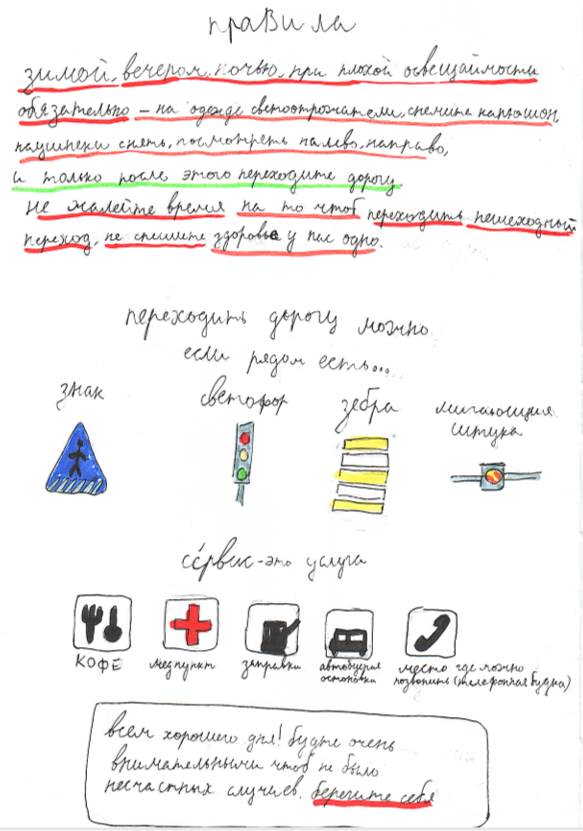 правила
зимой, вечером, ночью, при плохой освещаймости
обязательно – на одежде светоотрожатели, снемите капюшон,
наушнеки снять, посмотреть налево, направо,
и только после этого переходите дорогу
не жалейте время на то чтоб переходить пешеходный
переход, не спешите здоровье у нас одно.
переходить дорогу можно
если рядом есть...
знак
светофор
зебра
мигающия
штука
сервис – это услуга
КОФЕ
медпункт
заправка
автобусная
остоновка
место где можно
позвонить (телефонная будка)
всем хорошего дня! будте очень
внимательными чтоб не было
несчастных случиев. берегите себя